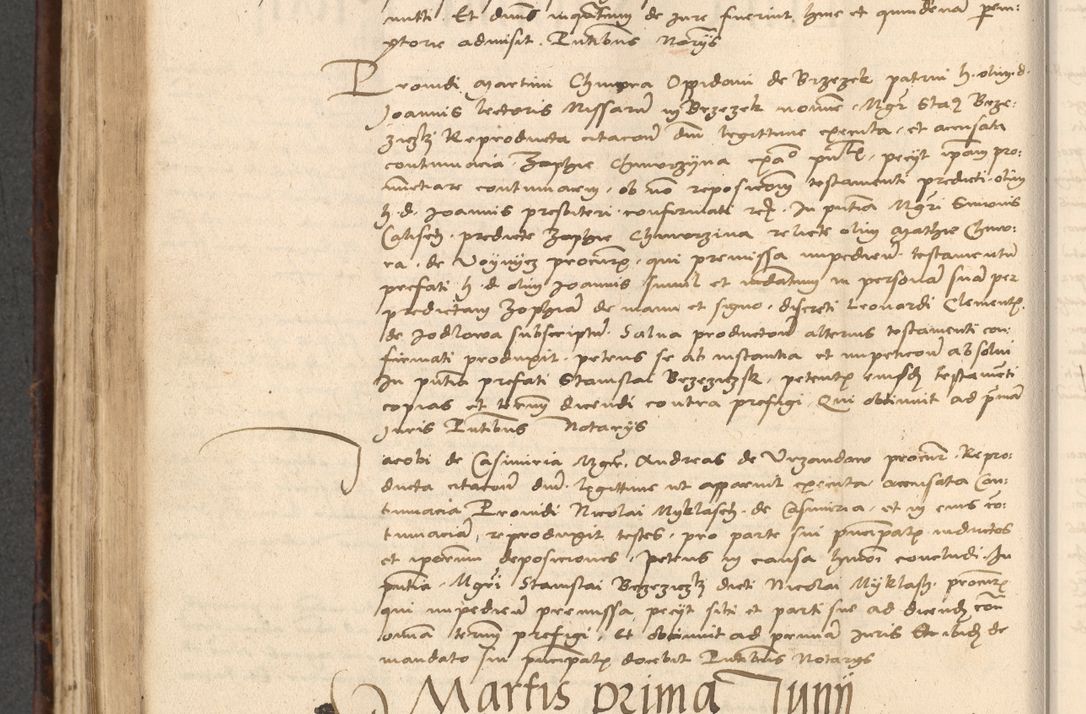 mitti. Et dums inquantum de Jure fuerint hinc et quindenam perem:
ptorie admisit. Pntibus Notarijs
Providi Martini Chmyra Oppidani de Brzezek patrui h. olim d.
Joannis lectoris Missarum in Brzezek nomine Mgr Stanis Brze:
zizki Reproducta citacone dum legittime executa, et accusata
contumacia Zophie Chmorzyna pecijt ipsam pro:
nuntiare contumacem, ob non reposicionem testamenti predicti olim
h. d. Joannis presbiteri confirmati In pntia Mgri Simonis
Calisch. predicte Zophie Chmorzina relicte olim Mathie Chmo:
ra. de Voynycz procuris, qui premissa impediens testamentum
prefati h. d. olim Joannis simul et mdatum in personam suam per
predictam Zophiam de manu et signo discreti Leonardi Clementis
de Jodlowa subscriptum. Salva productione alterius testamenti con:
firmati produxit petens se ab instantia et impeticone absolvi
In pntia prefati Stanislai Brzezizk, petentis eiusd testamenti
copias et termm dicendi contra prefigi, Qui obtinuit ad pmam
Juris Pntibus Notarijs
Jacobi de Casimiria Mgr. Andreas de Vrzandow procur. Repro:
ducta citacone dum legittime ut apparuit executa accusata Con:
tumacia Providi Nicolai Myklasch. de Casimiria, et in eius co:
tumaciam, reproduxit testes, pro parte sui principalis inductos
et ipsorum deposiciones, petens in causa hmoi concludi. In
pntia. Mgri Stanislai Brzezizki dicti Nicolai Myklasch. procuris
qui impediens premissa pecijt sibi et parti sue ad dicendum con
omnia termm prefigi, Et obtinuit ad primam Juris Et ibidem de
mandato sui principalis docebit Pntibus Notarijs
Martis prima Junij